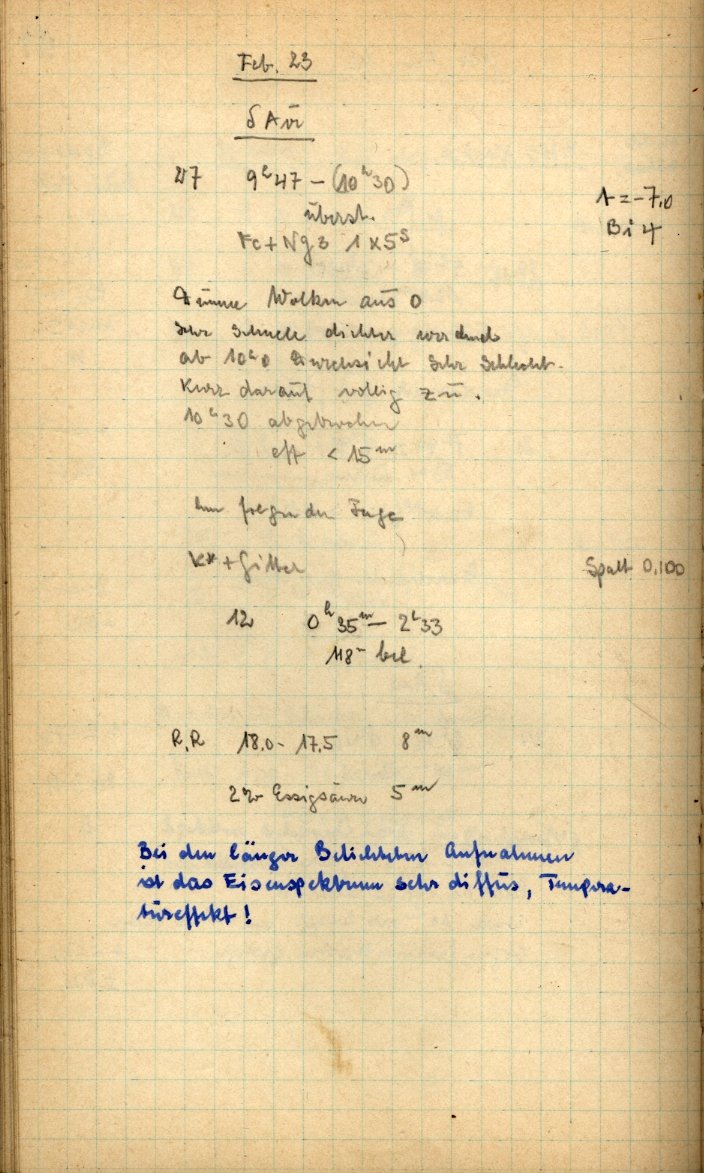 Feb. 23
δ Aur
27 9h47 – (10h30)
überst.
Fe + Ng 3 1 x 5s
1 = -7,0
Bi 4
Dünne Wolken aus O
sehr schnell dichter werdend
ab 10h0 Durchsicht sehr schlecht.
Kurz darauf völlig zu.
10h30 abgebrochen
eff < 15m
Am folgenden Tage
+ Gitter
Spalt 0,100
12 0h35m – 2h33
118m bel.
R,R 18,0 - 17,5 8m
2% Essigsäure 5m
Bei den länger Belichteten Aufnahmen
ist das Eisenspektrum sehr diffus, Tempera-
tureffekt!